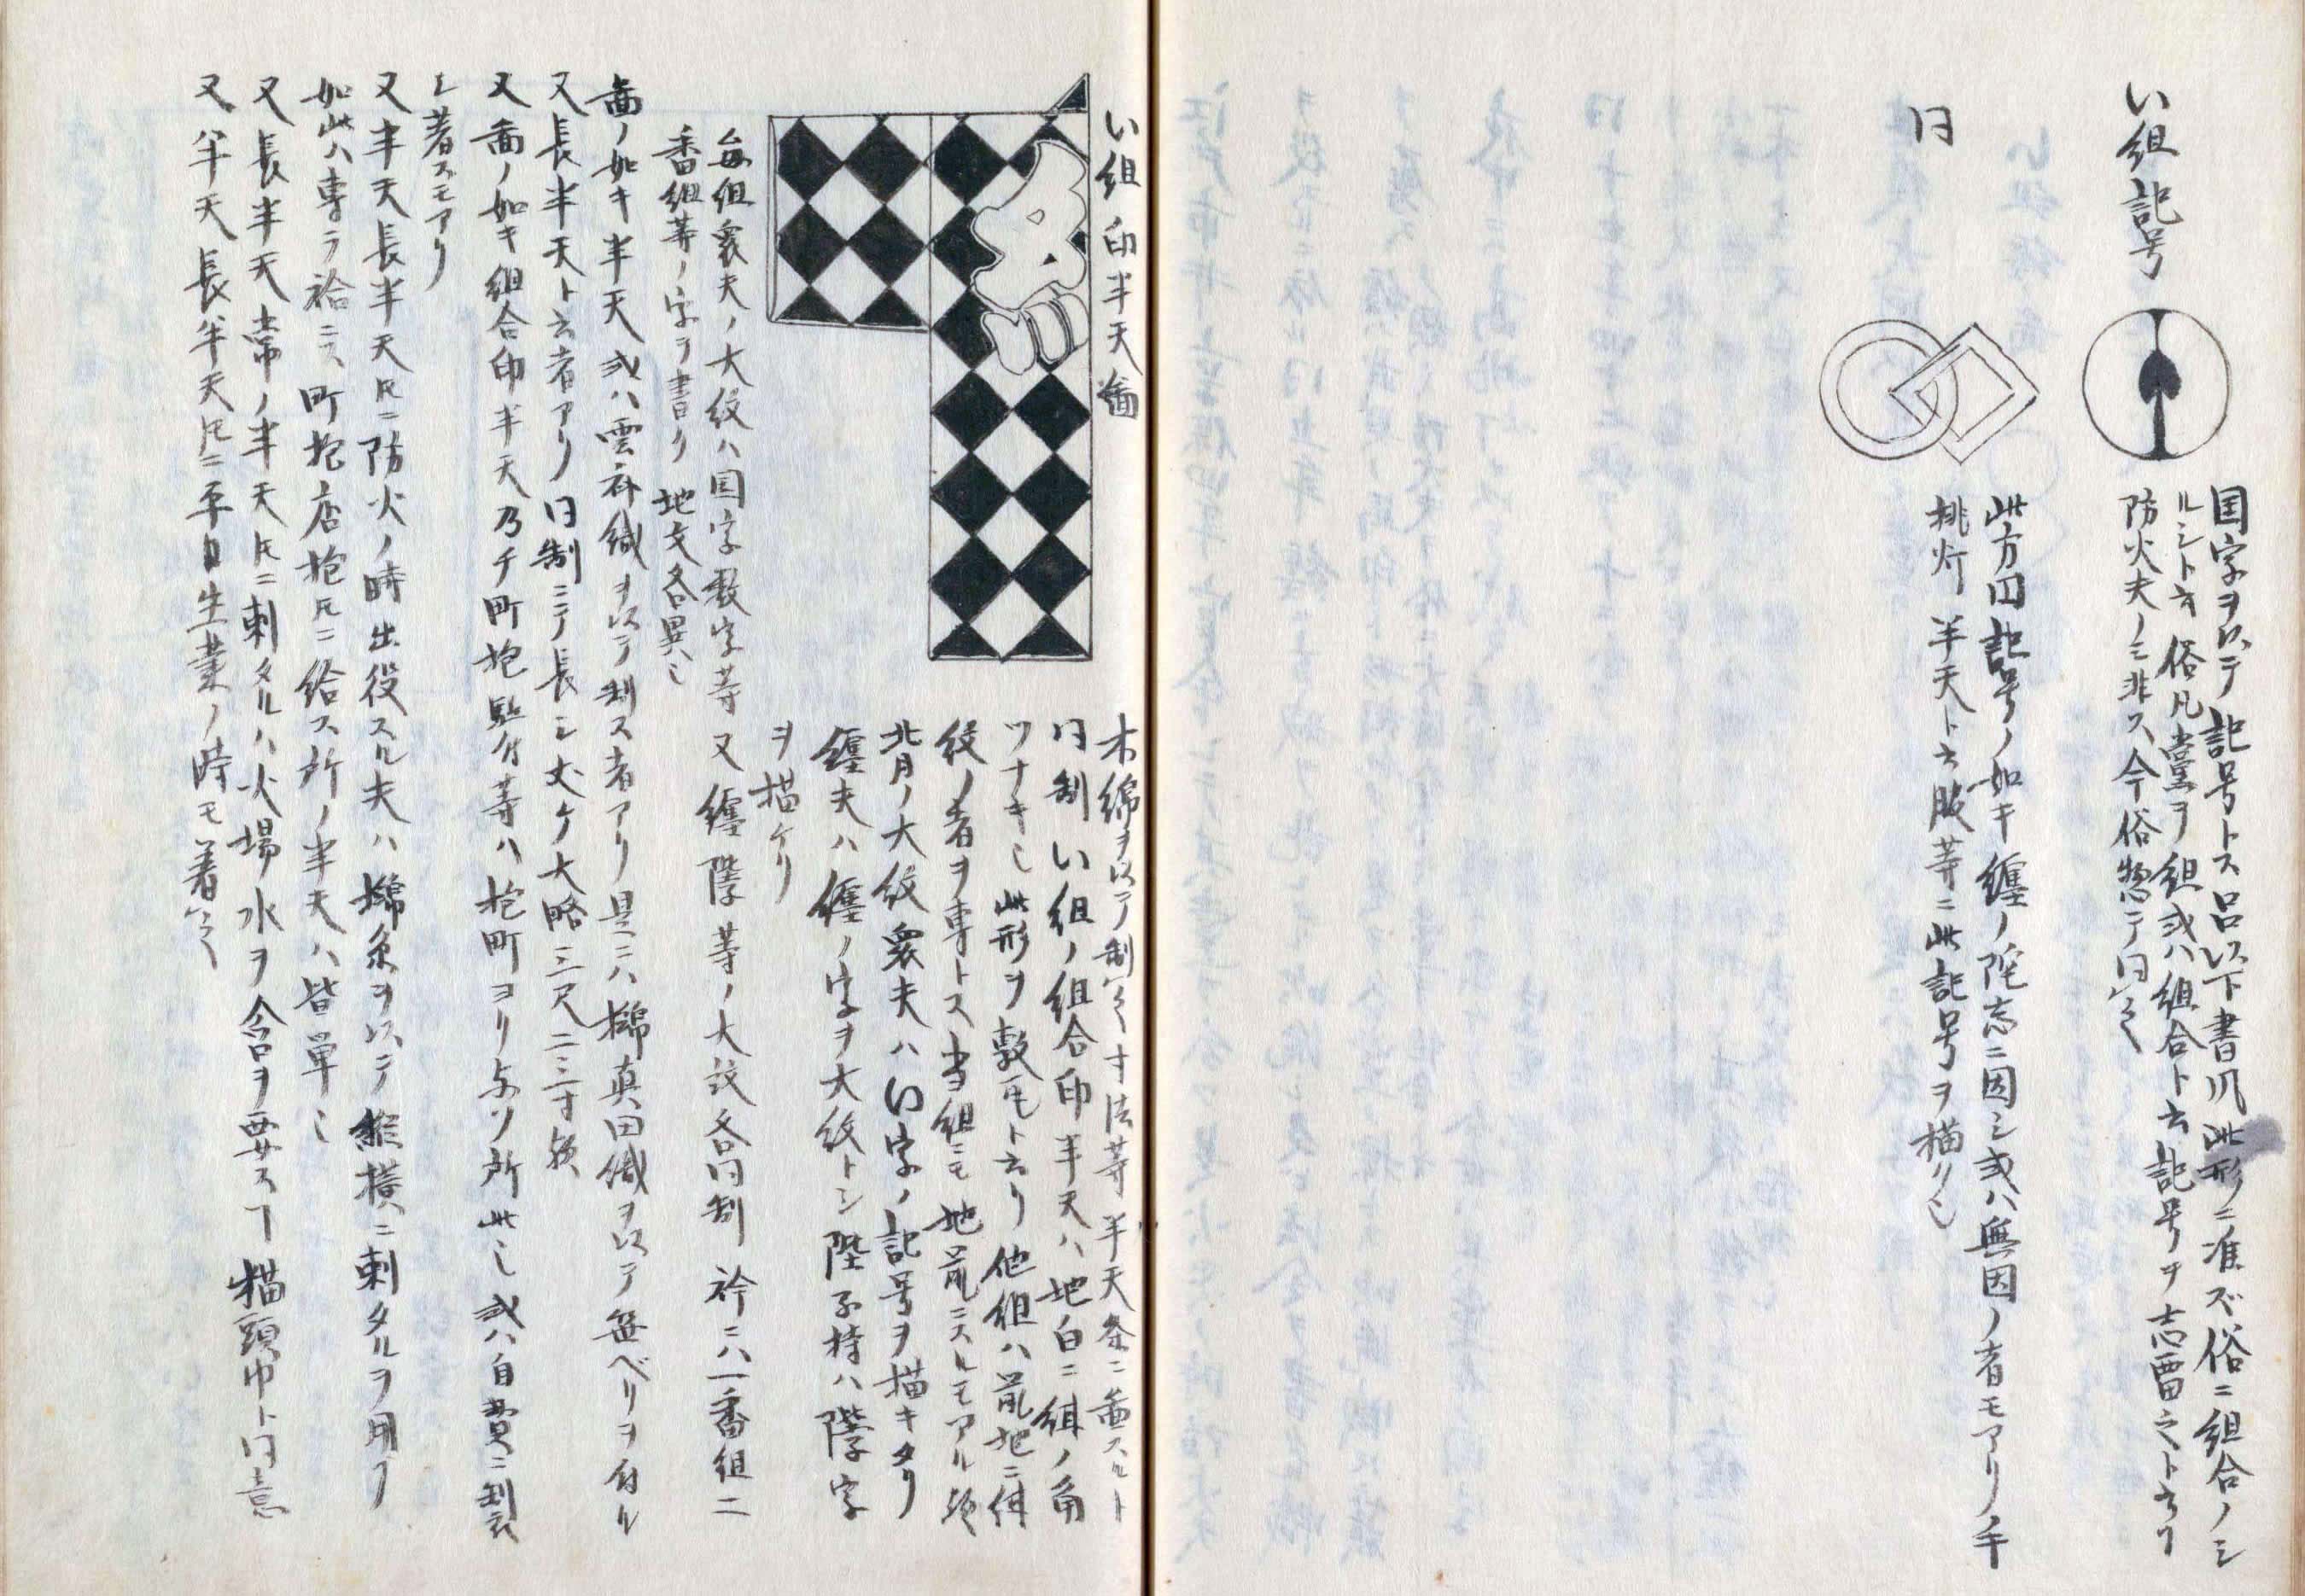 い組記号
国字ヲ以テ記号トス呂以下書川此形ノニ准ズ俗ニ組合ノシ
ルシト云 俗凡党ヲ組或ハ組合ト云記号ヲ志留シト云リ
防火夫ノミ非ス今俗惣テ同レ之
同
此方円記号ノ如キ纏ノ陀志ニ因シ或ハ無因ノ者モアリノ手
挑灯 半天ト云服等ニ此記号ヲ描ク也
い組印半天圖
木綿ヲ以テ制レ之寸法等半天条ニ圖スルト
同制 い組ノ組合印半天ハ地白ニ紺ノ角
ツナキ也 此形ヲ敷瓦ト云リ 他組ハ荒地ニ紺
紋ノ者ヲ専トス当組ニモ地荒ニスルモアル歟
背ノ大紋衆夫ハい字ノ記号ヲ描キタリ
纏夫ハ纏ノ字ヲ大紋トシ陛子持ハ階字
ヲ描ケリ
毎組衆夫ノ大紋ハ国字数字等 又纏階等ノ大紋各同制 衿ニハ一番組二
番組等ノ字ヲ書ク 地文各異也
圖ノ如キ半天或ハ雲斎織ヲ以テ制ス者アリ是ニハ綿真田織ヲ以テ笹ベリヲ付ル
又長半天ト云者アリ同制ニテ長シ丈ケ大略三尺二三寸歟
又圖ノ如キ組合印半天乃チ町抱監付等ハ抱町ヨリ与ソ所此也或ハ自費ニ製
シ着スモアリ
又半天長半天凡ニ防火ノ時出役スル夫ハ綿糸ヲ以テ縦横ニ刺タルヲ用フ
如此ハ専ラ袷ニス町抱店抱凡ニ給ス所ノ半天ハ皆単也
又長半天常ノ半天凡ニ刺タルハ火場水ヲ含ヲ要ス丁猫頭巾ト同意
又半天長半天凡ニ平日生業ノ時モ着レ之